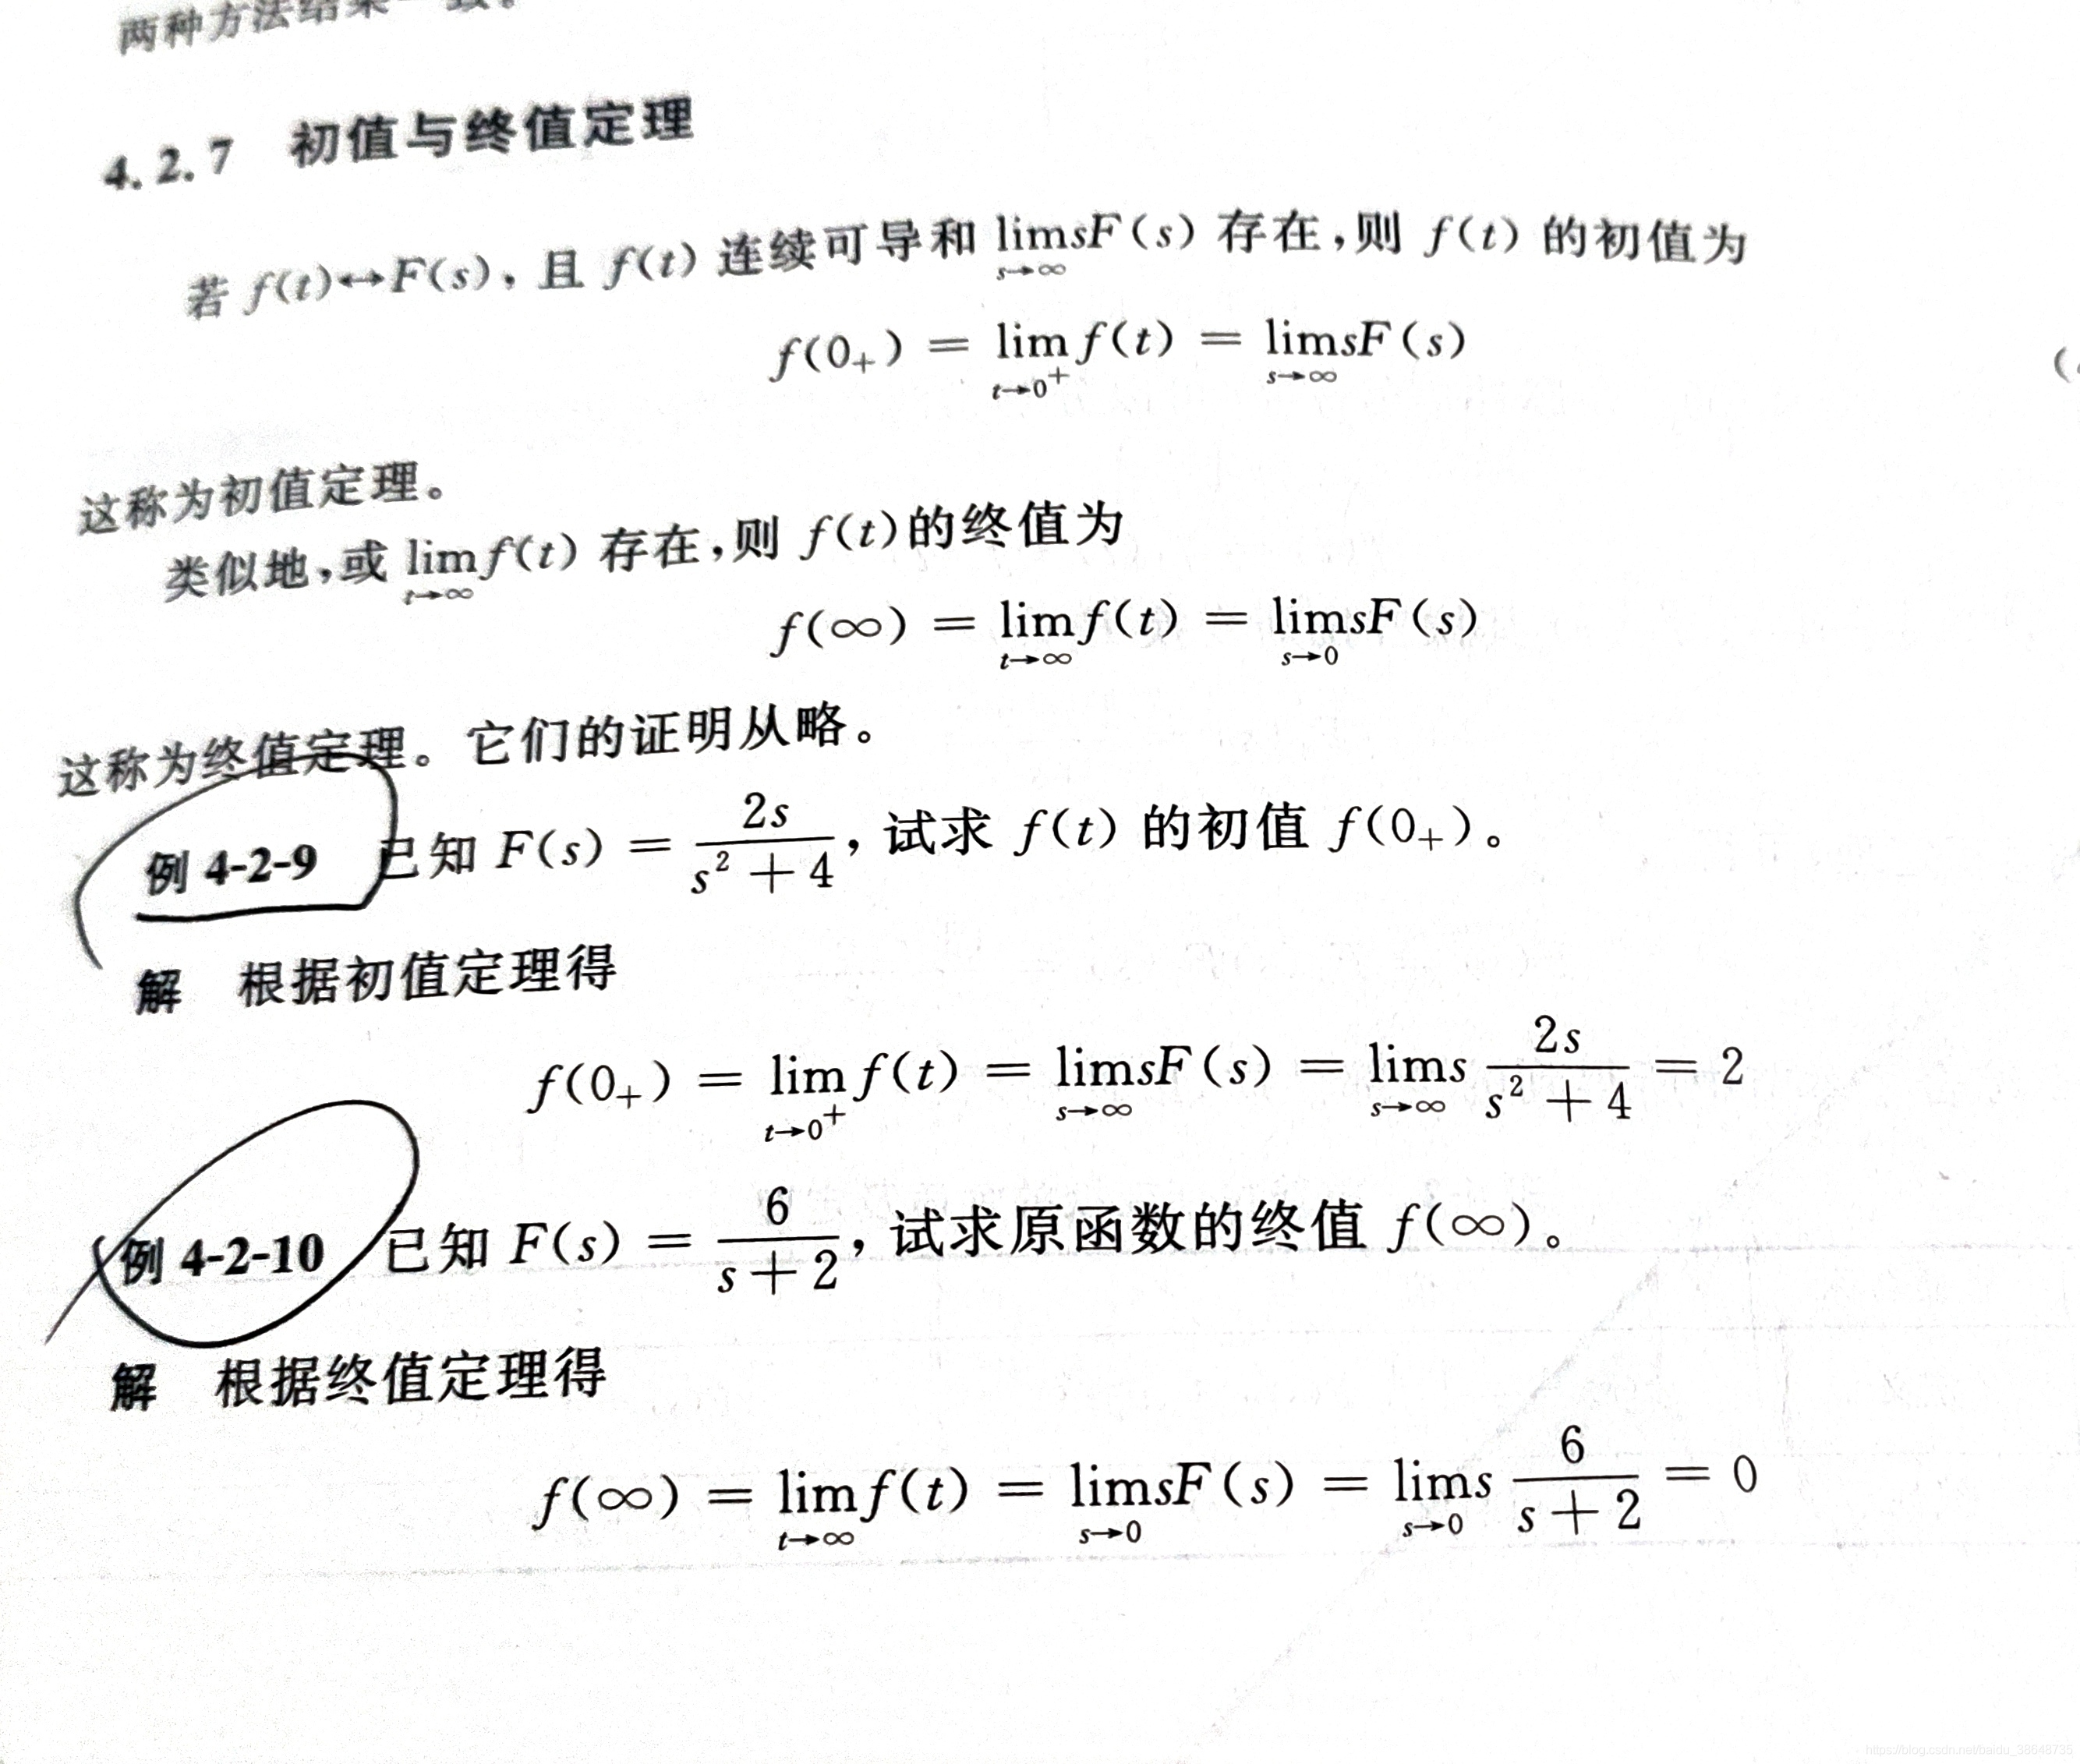 两种方法结果一致。
4.2.7 初值与终值定理
若 f(t)↔F(s), 且 f(t) 连续可导和 lim_{s→∞} sF(s) 存在,则 f(t) 的初值为
f(0₊) = lim_{t→0⁺} f(t) = lim_{s→∞} sF(s)
(
这称为初值定理。
类似地,或 lim_{t→∞} f(t) 存在,则 f(t)的终值为
f(∞) = lim_{t→∞} f(t) = lim_{s→0} sF(s)
这称为终值定理。它们的证明从略。
例 4-2-9 已知 F(s) = \frac{2s}{s²+4}, 试求 f(t) 的初值 f(0₊)。
解 根据初值定理得
f(0₊) = lim_{t→0⁺} f(t) = lim_{s→∞} sF(s) = lim_{s→∞} s \frac{2s}{s²+4} = 2
例 4-2-10 已知 F(s) = \frac{6}{s+2}, 试求原函数的终值 f(∞)。
解 根据终值定理得
f(∞) = lim_{t→∞} f(t) = lim_{s→0} sF(s) = lim_{s→0} s \frac{6}{s+2} = 0
https://blog.csdn.net/baidu_38648735